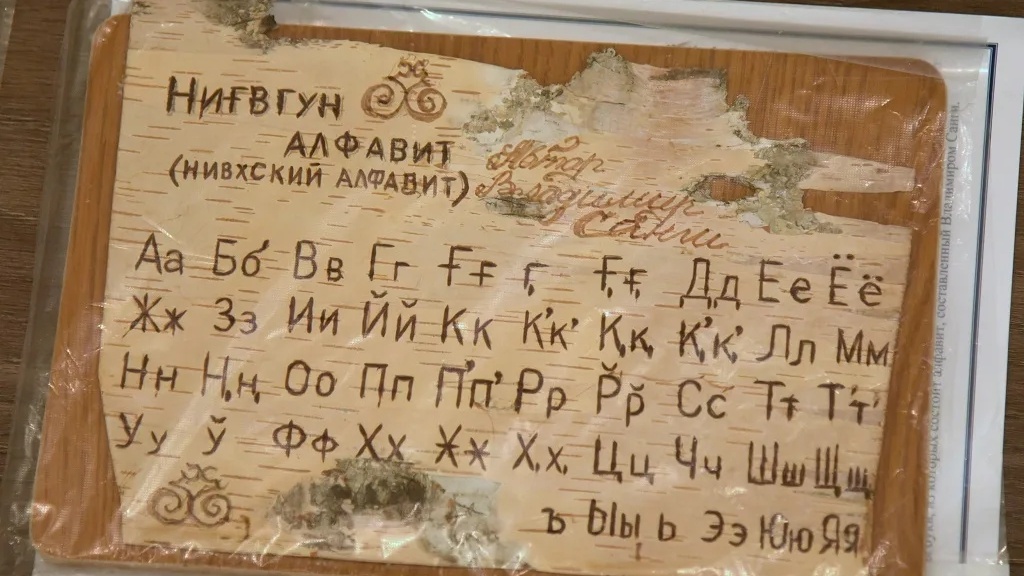 Ниӻвгун
алфавит
(нивхский алфавит)
Автор
Владимир
Санги
Аа Бб Вв Гг Ғғ Ӷ Ӻӻ Дд Ее Ёё
Жж Зз Ии Йй Кк К'к' Ққ Қ'қ' Лл Мм
Нн Ӈӈ Оо Пп П'п' Рр Р̆р̆ Сс Тт Т'т'
Уу Ў Фф Хх Ӿӿ Ҳҳ Цц Чч Шш Щщ
ъ Ыы ь Ээ Юю Яя
алфавит, составленный Владимиром Санги.